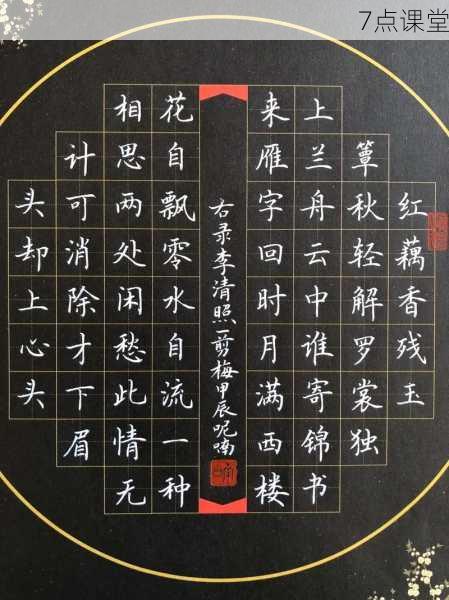 7点课堂
红藕香残玉
簟秋轻解罗裳独
上兰舟云中谁寄锦书
来雁字回时月满西楼
花自飘零水自流一种
相思两处闲愁此情无
计可消除才下眉
头却上心头
右录李清照一剪梅甲辰呢喃